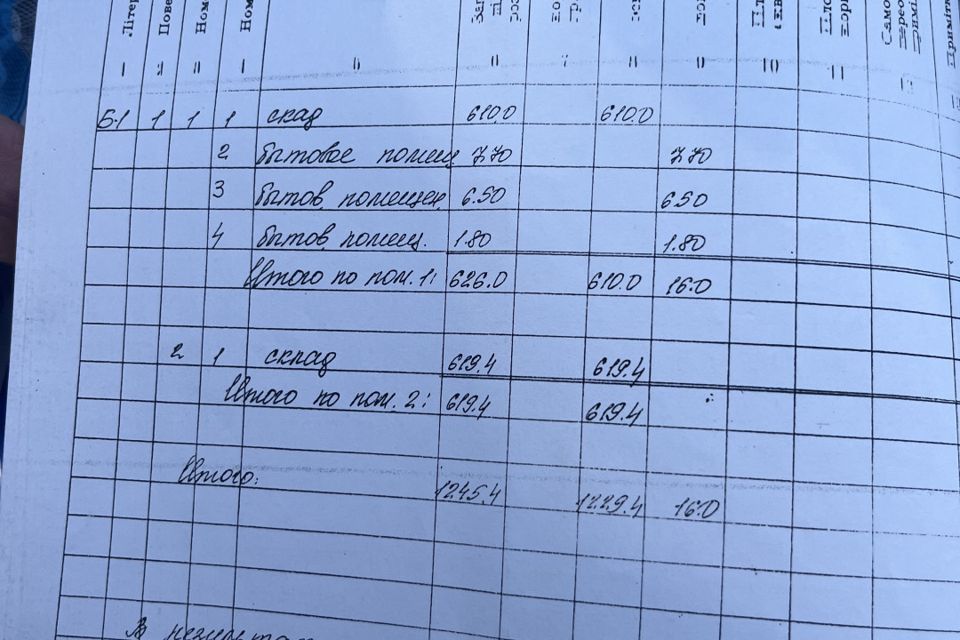 Літер
Пове
Ном
Ном
Пло
Само
Б-1 1 1 1 скад 610.0 610.0
2 бытовое помещ 7.70 7.70
3 бытов. помещен. 6.50 6.50
4 бытов. помещ. 1.80 1.80
Итого по пом. 1: 626.0 610.0 16.0
2 1 склад 619.4 619.4
Итого по пом. 2: 619.4 619.4
Итого: 1245.4 1229.4 16.0